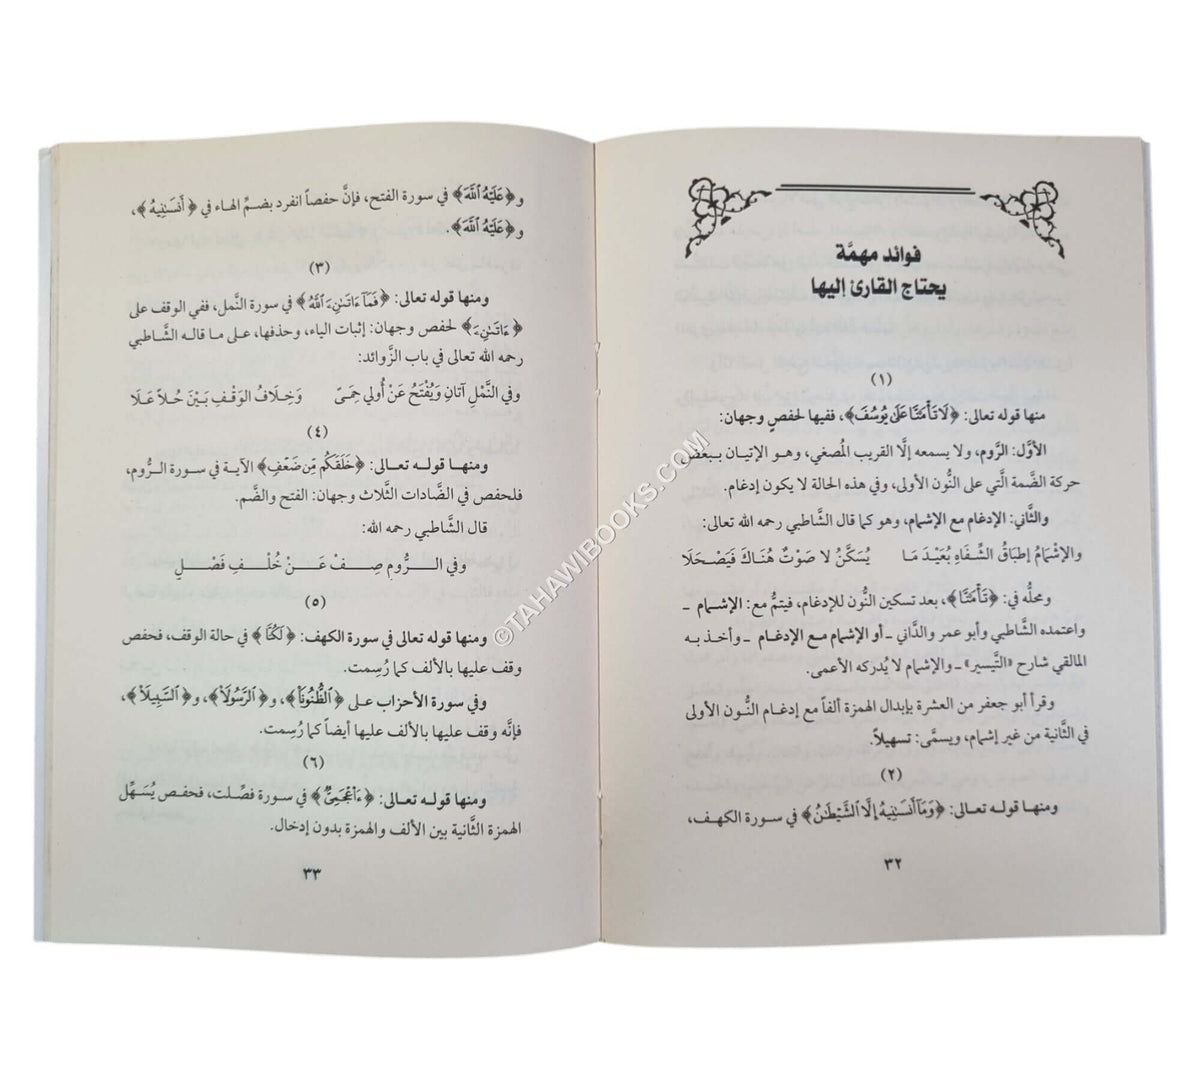 فوائد مهمَّة
يحتاج القارئ إليها
(١)
منها قوله تعالى: ﴿لَا تَأْمَ۫نَّا عَلَىٰ يُوسُفَ﴾، ففيها لحفصٍ وجهان:
الأوَّل: الرَّوم، ولا يسمعه إلَّا القريب المُصغي، وهـو الإتيان بـبعض
حركة الضمة الَّتي على النُّون الأولى، وفي هذه الحالة لا يكون إدغام.
والثَّاني: الإدغام مع الإشمام، وهو كما قال الشَّاطبي رحمه الله تعالى:
والإشْمَامُ إطبَاقُ الشِّفَاهِ بُعَيْـدَ مَـا يُسَكَّنُ لا صَوْتٌ هُنَاكَ فَيَصْحَلَا
ومحلُّه في: ﴿تَأْمَ۫نَّا﴾، بعد تسكين النُّون للإدغام، فيتمُّ مع: الإشمام ـ
واعتمده الشَّاطبي وأبو عمر والدَّاني ـ أو الإشمام مع الإدغام ـ وأخـذ بـه
المالقي شارح «التَّيسير» ـ والإشمام لا يُدركه الأعمى.
وقرأ أبو جعفر من العشرة بإبدال الهمزة ألفاً مع إدغـام النُّـون الأولى
في الثَّانية من غير إشمام، ويسمَّى: تسهيلاً.
(٢)
ومنهـا قولـه تعـالى: ﴿وَمَآ أَنسَىٰنِيهُ إِلَّا ٱلشَّيْطَٰنُ﴾ في سورة الكهـف،
٣٢
و﴿عَلَيْهُ ٱللَّهَ﴾ في سورة الفتح، فإنَّ حفصاً انفرد بضمِّ الهاء في ﴿أَنسَىٰنِيهُ﴾،
و﴿عَلَيْهُ ٱللَّهَ﴾.
(٣)
ومنها قوله تعالى: ﴿فَمَآ ءَاتَىٰنِۦَ ٱللَّهُ﴾ في سورة النَّمل، ففي الوقف على
﴿ءَاتَىٰنِۦَ﴾ لحفص وجهان: إثبات الياء، وحذفها، على ما قالـه الشَّـاطبي
رحمه الله تعالى في باب الزَّوائد:
وفي النَّمْلِ آتانِ وَيُفْتَحُ عَنْ أُولي حِمَىً وَخِلَافُ الوَقْـفِ بَيْـنَ حُـلاً عَـلَا
(٤)
ومنهـا قولـه تعـالى: ﴿خَلَقَكُم مِّن ضَعْفٍ﴾ الآية في سـورة الرُّوم،
فلحفص في الضَّادات الثَّلاث وجهان: الفتح والضَّم.
قال الشَّاطبي رحمه الله:
وفي الـــرُّومِ صِـــفْ عَـــنْ خُلْـــفِ فَصْـــلٍ
(٥)
ومنها قولـه تعالى في سورة الكهف: ﴿لَّٰكِنَّا﴾ في حالة الوقف، فحفص
وقف عليها بالألف كما رُسِمت.
وفي سورة الأحزاب علـى ﴿ٱلظُّنُونَا۠﴾، و﴿ٱلرَّسُولَا۠﴾، و﴿ٱلسَّبِيلَا۠﴾،
فإنَّه وقف عليها بالألف عليها أيضاً كما رُسِمت.
(٦)
ومنهـا قولـه تعـالى: ﴿ءَا۬عْجَمِىٌّ﴾ في سورة فصِّلت، فحفـص يُسَـهِّل
الهمزة الثَّانية بين الألف والهمزة بدون إدخال.
٣٣
©TAHAWIBOOKS.COM